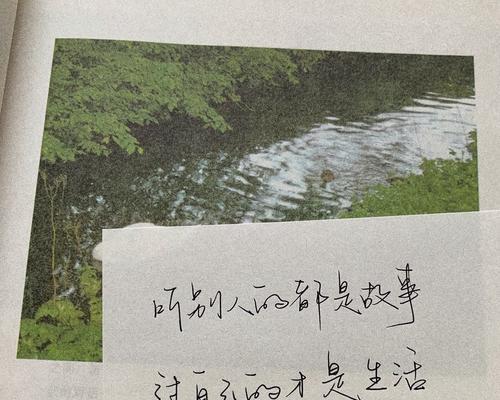 听别人的都是故事
过自己的才是生活